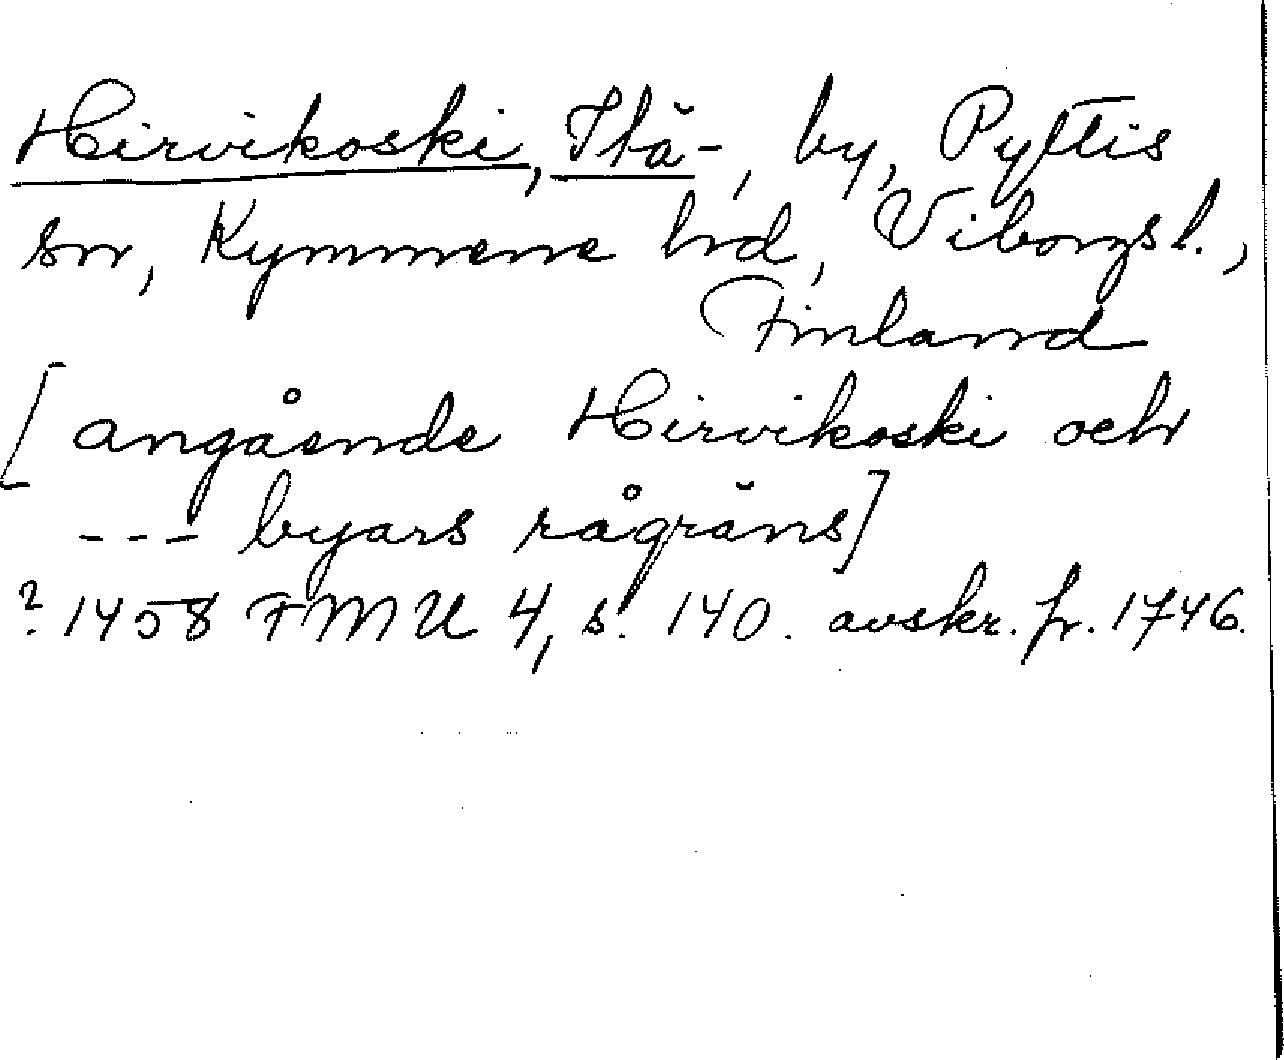 Hirvikoski, Itä-, by, Pyttis
sn, Kymmene hrd, Viborgs l.,
Finland
[angående Hirvikoski och
--- byars rågräns]
? 1458 FMU 4, s. 140. avskr. fr. 1746.